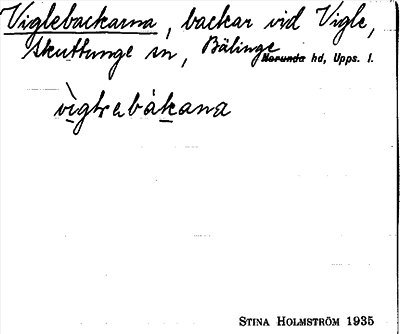 Viglebackarna, backar vid Vigle,
Skuttunge sn, Bälinge Norunda hd, Upps. l.
vìgłẹbákana
STINA HOLMSTRÖM 1935